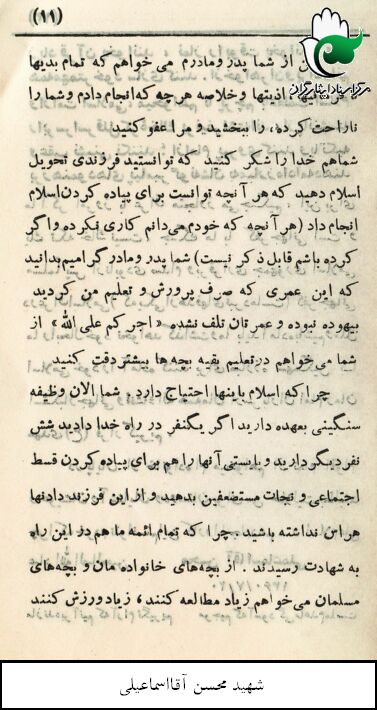 (۱۱)
مرکز اسناد ایثارگران
از شما پدر ومادرم می خواهم که تمام بدیها
اذیتها وخلاصه هرچه که انجام دادم وشما را
ناراحت کرده، را ببخشید و مرا عفو کنید
شماهم خدا را شکر کنید که توانستید فرزندی تحویل
اسلام دهید که هر آنچه توانست برای پیاده کردن اسلام
انجام داد (هر آنچه که خودم می‌دانم کاری نکرده واگر
کرده باشم قابل ذکر نیست) شما پدر ومادر گرامیم بدانید
که این عمری که صرف پرورش و تعلیم من کردید
بیهوده نبوده و عمرتان تلف نشده «اجرکم علی الله» از
شما می‌خواهم در تعلیم بقیه بچه‌ها بیشتر دقت کنید
چرا که اسلام باینها احتیاج دارد. شما الان وظیفه
سنگینی بعهده دارید اگر یکنفر در راه خدا دادید شش
نفر دیگر دارید و بایستی آنها را هم برای پیاده کردن قسط
اجتماعی و نجات مستضعفین بدهید و از این فرزند دادنها
هراس نداشته باشید. چرا که تمام ائمه ما هم در این راه
به شهادت رسیدند. از بچه‌های خانواده مان و بچه‌های
مسلمان می‌خواهم زیاد مطالعه کنند، زیاد ورزش کنند
شهید محسن آقااسماعیلی